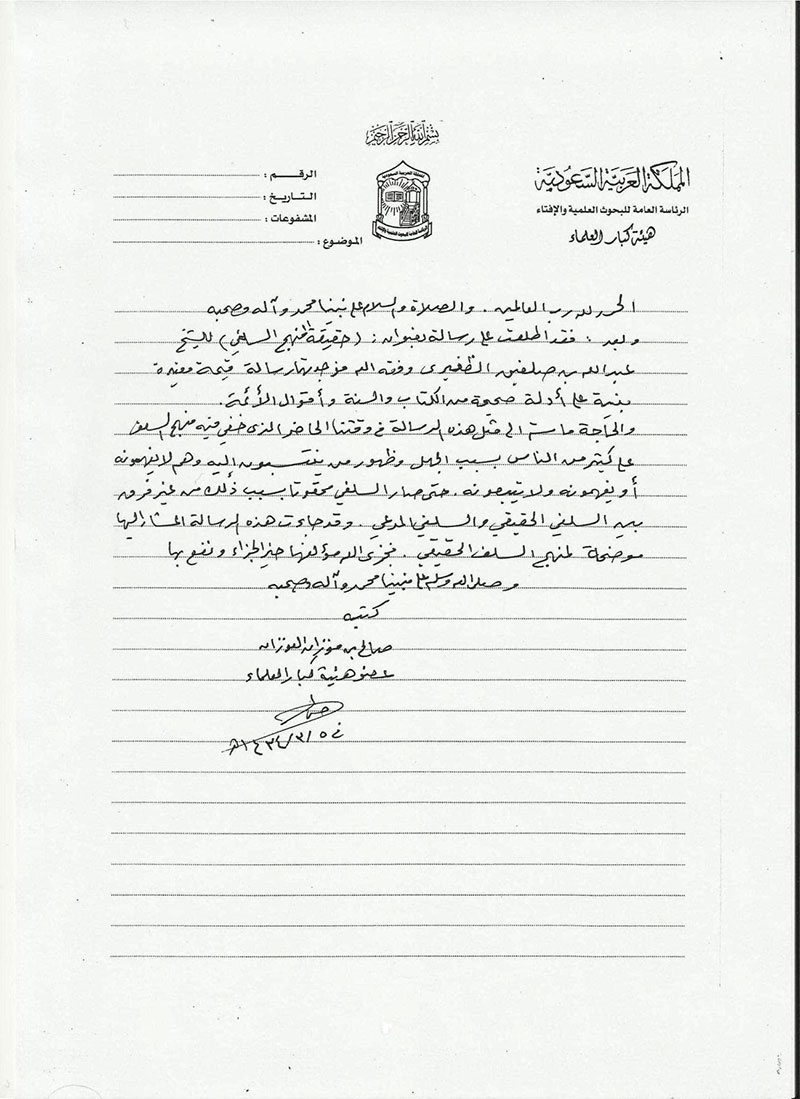 بسم الله الرحمن الرحيم
المملكة العربية السعودية
الرئاسة العامة للبحوث العلمية والإفتاء
هيئة كبار العلماء
المملكة العربية السعودية
الرقم :
التاريخ :
المشفوعات :
الموضوع :
الحمد لله رب العالمين . والصلاة والسلام على نبينا محمد وآله وصحبه
وبعد : فقد اطلعت على رسالة بعنوان : (حقيقة المنهج السلفي) للشيخ
عبدالله بن صلفيق الظفيري وفقه الله فوجدتها رسالة قيمة مفيدة
مبنية على أدلة صحيحة من الكتاب والسنة وأقوال الأئمة .
والحاجة ماسة إلى مثل هذه الرسالة في وقتنا الحاضر الذي خفي فيه منهج السلف
على كثير من الناس بسبب الجهل وظهور من ينتسبون إليه وهم لا يفهمونه
أو يفهمونه ولا يتبعونه . حتى صار السلفي ممقوتا بسبب ذلك من غير فرق
بين السلفي الحقيقي والسلفي المدعي . وقد جاءت هذه الرسالة المشار إليها
موضحة لمنهج السلف الحقيقي . فجزى الله مؤلفها خير الجزاء ونفع بها
وصلى الله وسلم على نبينا محمد وآله وصحبه
كتبه
صالح بن فوزان الفوزان
عضو هيئة كبار العلماء
في ٥/٣/١٤٣٤هـ